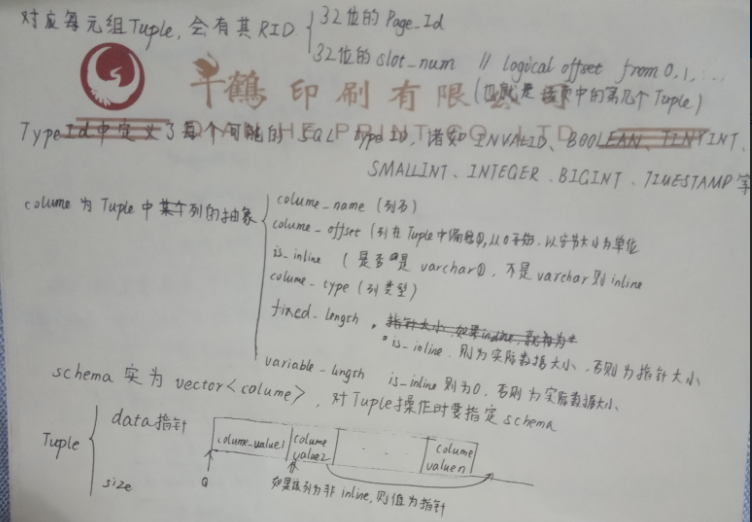 对应每元组Tuple,会有其RID
32位的Page_Id
32位的slot_num // logical offset from 0,1,...
(也就是页中的第几个Tuple)
千鹤印刷有限
Type Id中定义了每个可能的SQL type ID,诸如INVALID、BOOLEAN、TINYINT、
SMALLINT、INTEGER、BIGINT、TIMESTAMP等
colume为Tuple中某个列的抽象
colume_name (列名)
colume_offset (列在Tuple中偏移,从0开始,以字节大小为单位
is_inline (是否是varchar,不是varchar则inline
colume_type (列类型)
fixed_length 指针大小,如果inline,
is_inline 则为实际数据大小,否则为指针大小
variable_length is_inline则为0,否则为实际数据大小
schema 实为 vector<colume>,对Tuple操作时要指定schema
Tuple
data指针
colume_value1
colume value2
. .
colume valuen
size
0
如果该列为非inline,则值为指针